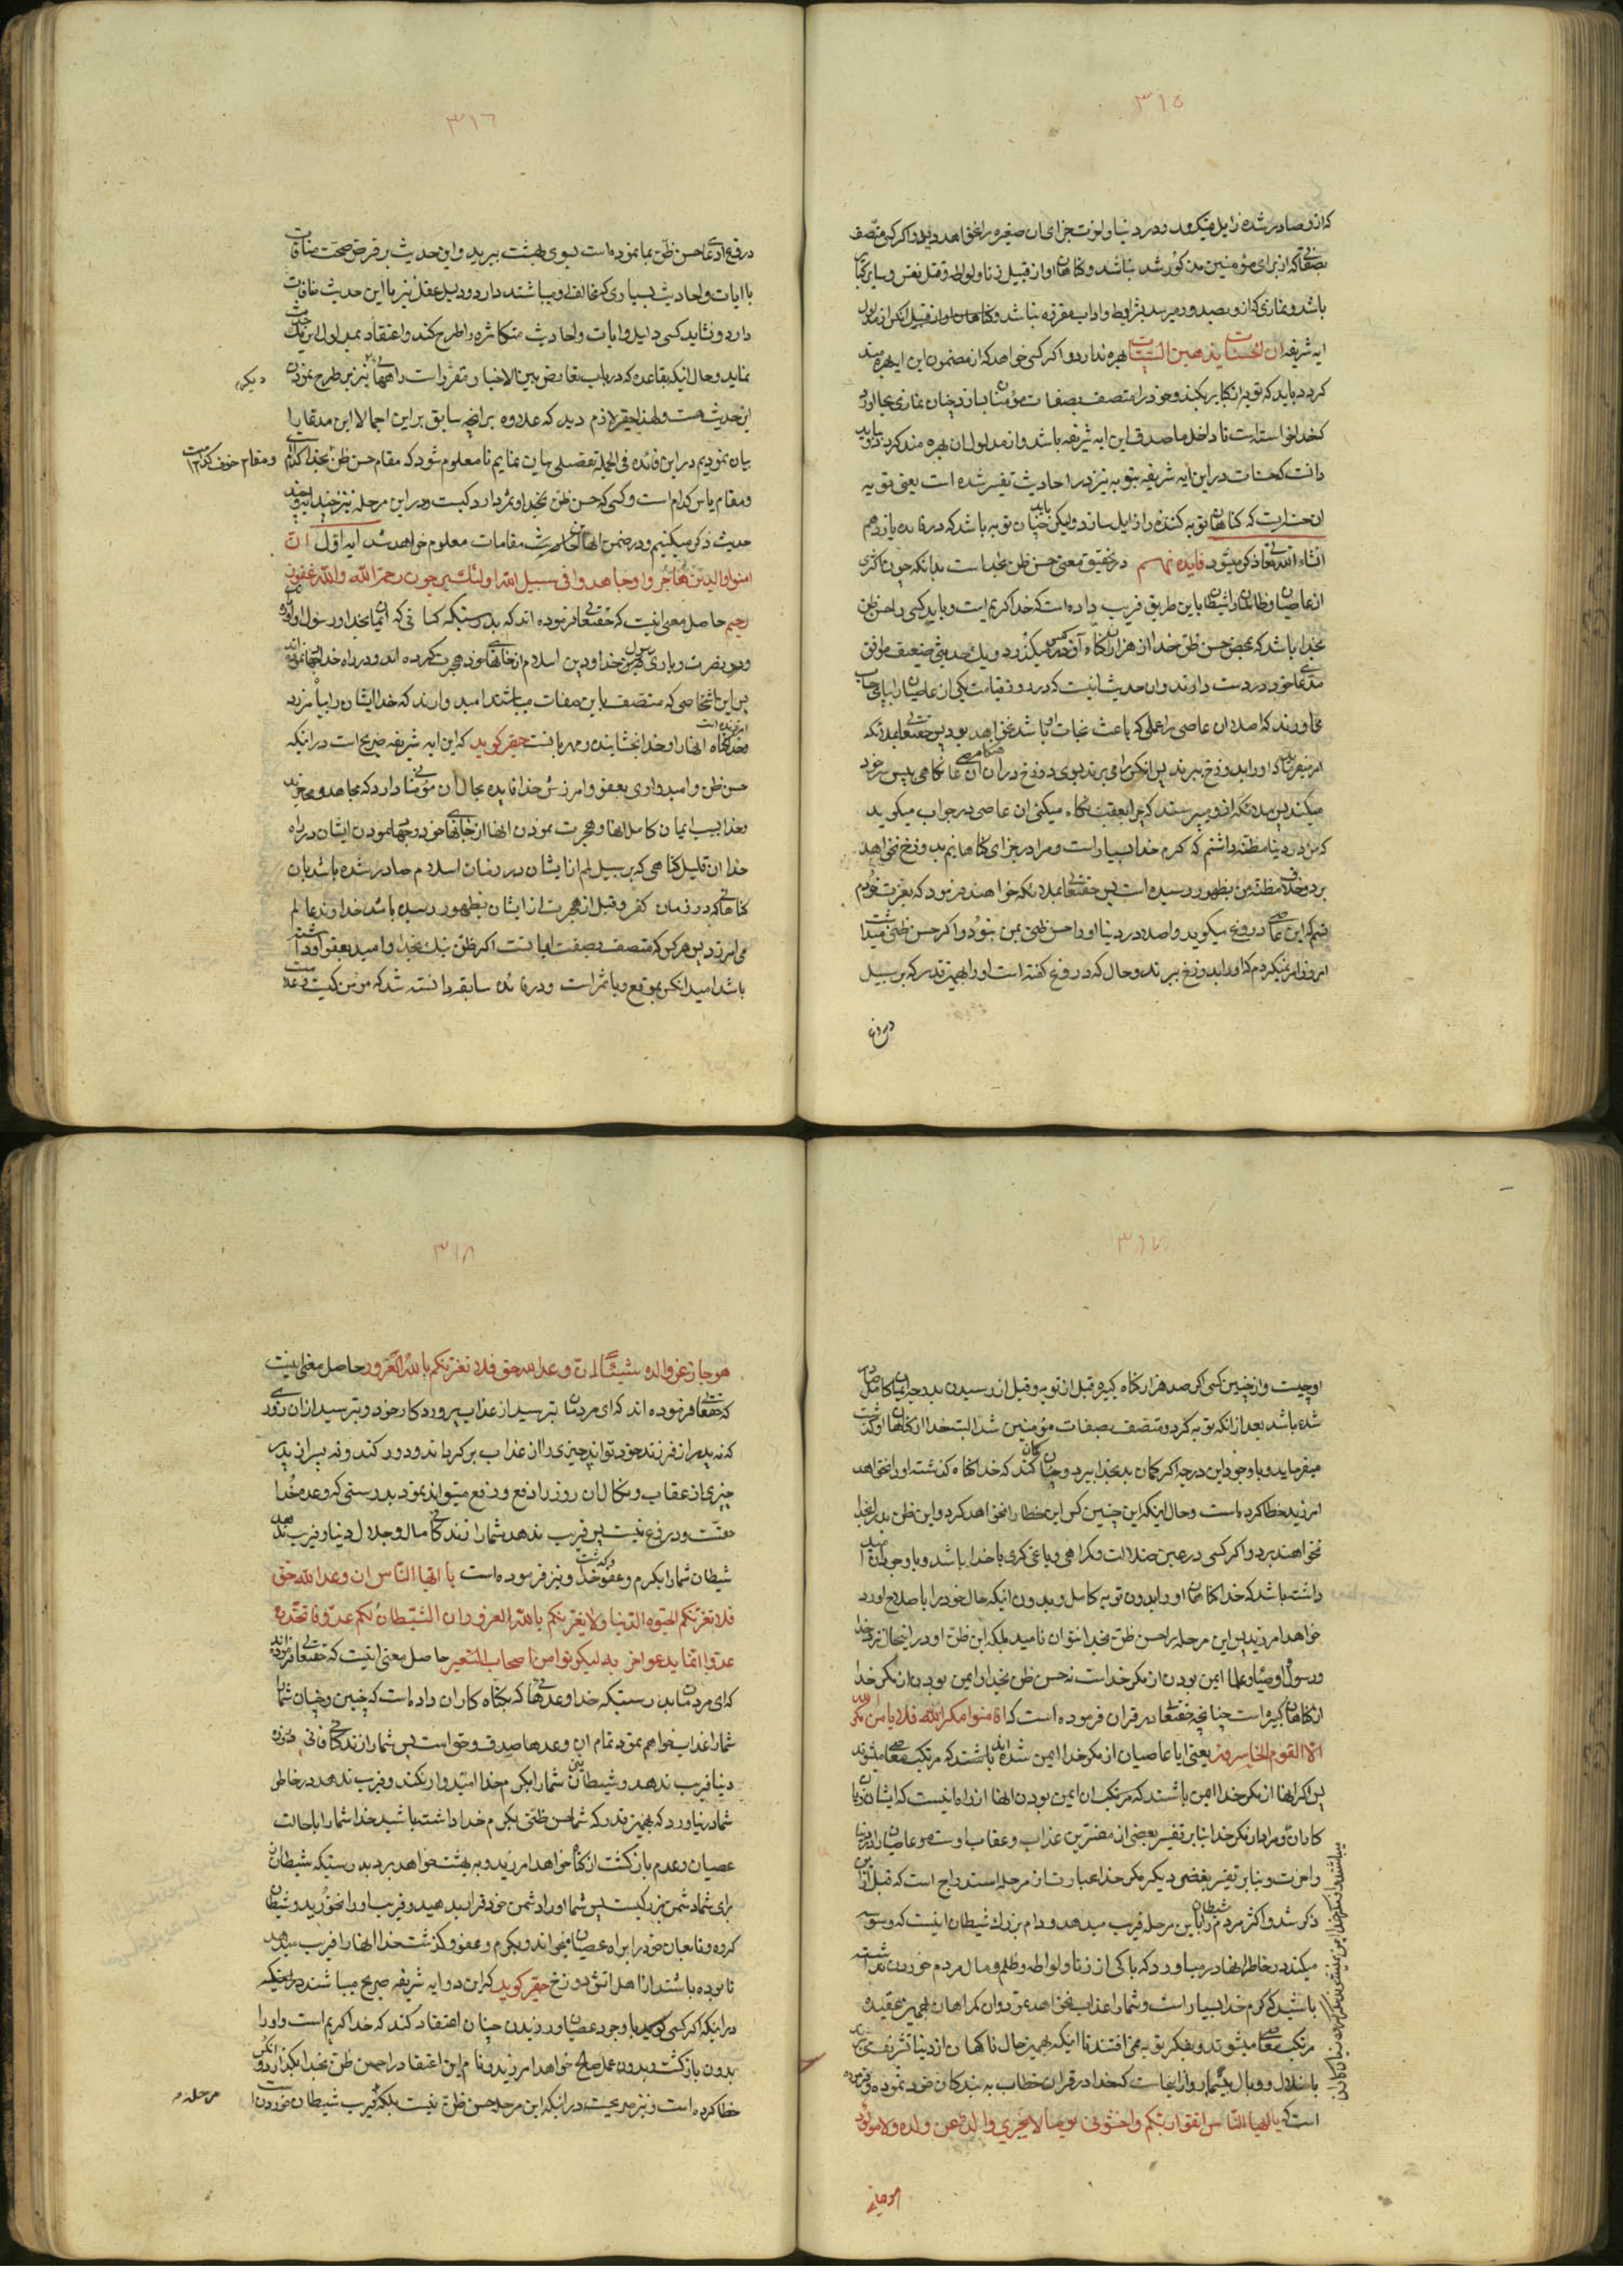 ٣١٥
که از او صادر شده زایل میگردد و در دنیا و اخرت جزای ان صغیره را نخواهد دید و اگر کسی متصف
بصفاتی که از برای مؤمنین مذکور شد نباشد و گناهان او از قبیل زنا و لواط و قتل نفس و سایر کبایر
باشد و نمازی که از او بصدور میرسد بشرایط و اداب مقرره نباشد
ایه شریفه ان الحسنات یذهبن السیئات بهره ندارد و اگر کسی خواهد که از مضمون این ایه بهره مند
گردد باید که توبه از کبایر بکند و خود را متصف بصفات مؤمنان سازد چنان نمازی بجا اورد
که خدا خواسته است تا داخل ما صدق این ایه شریفه باشد و از مدلول ان بهره مند گردد و باید
دانست که حسنات در این ایه شریفه بتوبه نیز در احادیث تفسیر شده است یعنی توبه
ان حسنه ایست که گناهان توبه کننده را زایل سازد ولیکن باید چنان توبه باشد که در فایده یازدهم
انشاء الله تعالی ذکر میشود فایده نهم در تحقیق معنی حسن ظن بخداست بدانکه چون اکثری
از عاصیان و ظالمان را شیطان باین طریق فریب داده است که خدا کریم است و باید کسی را حسن ظن
بخدا باشد که بمحض حسن ظن خدا از هزاران گناه آن کس در میگذرد و یک حدیثی ضعیف موافق
مدعای خود در دست دارند و ان حدیث اینست که در روز قیامت یکی از عاصیان را بپای حساب
می اورند که اصلا ان عاصی را عملی که باعث نجات او باشد نخواهد بود پس حقتعالی بملائکه
امر میفرماید که او را بدوزخ ببرند پس انکس را می برند بسوی دوزخ در ان هنگام ان عاصی نگاهی بپس سر خود
میکند پس ملائکه از او میپرسند که چرا بعقب نگاه میکنی ان عاصی در جواب میگوید
که من در دنیا مظنه داشتم که کرم خدا بسیار است و مرا در جزای گناهانم بدوزخ نخواهد
برد و خلاف مظنه من بظهور رسیده است پس حقتعالی بملائکه خواهند فرمود که بعزت خودم
قسم که این عاصی دروغ میگوید و اصلا در دنیا او را حسن ظنی بمن نبود و اگر حسن ظنی میداشت
امروز امر نمیکردم که او را بدوزخ ببرند و حال که دروغ گفته است او را بهمین قدر که بر سبیل
دروغ
٣١٦
دروغ ادعای حسن ظن بما نموده است بسوی بهشت ببرید و این حدیث بر فرض صحت منافات
با ایات و احادیث بسیاری که مخالف او میباشند دارد و دلیل عقل نیز با این حدیث منافات
دارد و نشاید کسی دلیل و ایات و احادیث متکاثره را طرح کند و اعتقاد بمدلول این یک حدیث
نماید و حال انکه بقاعده که در باب تعارض بین الاخبار مقرر است راههای دیگر نیز بر طرح نمودن
این حدیث هست و لهذا حقیر لازم دید که علاوه بر انچه سابق بر این اجمالا این مدعا را
بیان نمودیم در این فائده فی الجمله تفصیلی بیان نمایم تا معلوم شود که مقام حسن ظن بخدا کدام است و مقام خوف کدام است
و مقام یاس کدام است و کسی که حسن ظن بخدا و ثمر دارد کیست و در این مرحله نیز چند ایه و چند
حدیث ذکر میکنیم و در ضمن انها مقامات معلوم خواهد شد ایه اول ان الذین
امنوا والذین هاجروا وجاهدوا فی سبیل الله اولئک یرجون رحمة الله والله غفور
رحیم حاصل معنی اینست که حقتعالی فرموده اند که بدرستیکه کسانی که ایمان بخدا و رسول اورده
و در نصرت و یاری رسول خدا و دین اسلام از خانهای خود هجرت کرده اند و در راه خدا جهاد نموده اند
پس این اشخاصی که متصف باین صفات میباشند امیدوارند که خدا ایشان را بیامرزد
و خدا امرزنده است گناه انها را و خدا بخشاینده و مهربانست حقیر گوید که این ایه شریفه صریح است در اینکه
حسن ظن و امیدواری بعفو و امرزش خدا فایده بحال ان مؤمنان دارد که مجاهد و مهاجرند
و خدا بسبب ایمان کامل انها و هجرت نمودن انها از خانهای خود و جهاد نمودن ایشان در راه
خدا ان قلیل گناهی که بر سبیل لمم از ایشان در زمان اسلام صادر شده باشد یا ان
گناهانی که در زمان کفر و قبل از هجرت از ایشان بظهور رسیده باشد خداوند عالم
می امرزد پس هر کس که متصف بصفت ایمانست اگر ظن نیک بخدا و امید بعفو او داشته
باشد امید انکس بموقع و با ثمر است و در فایده سابقه دانسته شد که مومن کیست و علامت
٣١٧
او چیست و از چنین کسی اگر صد هزار گناه کبیره قبل از توبه و قبل از رسیدن بدرجه ایمان کامل صادر
شده باشد بعد از انکه توبه کرد و متصف بصفات مؤمنین شد البته خدا از گناهان او گذشت
میفرماید و با وجود این درجه اگر گمان بد بخدا ببرد و چنان گمان کند که خدا گناه گذشته او را نخواهد
امرزید خطا کرده است و حال اینکه این چنین کس این خطا را نخواهد کرد و این ظن بد را بخدا
نخواهند برد و اگر کسی در عین ضلالت و گمراهی و یاغی گری با خدا باشد و با وجود ان امید
داشته باشد که خدا گناهان او را بدون توبه کامل و بدون اینکه حال خود را باصلاح اورد
خواهد امرزید پس این مرحله را حسن ظن بخدا نتوان نامید بلکه این ظن او در اینحال نزد خدا
و رسول و اوصیا و علما ایمن بودن از مکر خداست نه حسن ظن بخدا و ایمن بودن از مکر خدا
از گناهان کبیره است چنانچه حقتعالی در قران فرموده است که افامنوا مکر الله فلا یامن مکر الله
الا القوم الخاسرون یعنی ایا عاصیان از مکر خدا ایمن شده اند باشند که مرتکب معاصی میشوند
پس اگر انها از مکر خدا ایمن باشند که مرتکب ان ایمن بودن انها از راه اینست که ایشان زیان
کارانند و مراد از مکر خدا بنا بر تفسیر بعضی از مفسرین عذاب و عقاب اوست مر عاصیان را در دنیا
و اخرت و بنا بر تفسیر بعضی دیگر مکر خدا عبارت از مرحله استدراج است که قبل از این
ذکر شد و اکثر مردم را شیطان باین مرحله فریب میدهد و دام بزرگ شیطان اینست که وسوسه
میکند و بخاطر انها در میاورد که باکی از زنا و لواطه و ظلم و مال مردم خوردن نداشته
باشید که کرم خدا بسیار است و شما را عذاب نخواهد نمود و ان گمراهان بهمین عقیده
مرتکب معاصی میشوند و بفکر توبه نمی افتند تا اینکه بهمین حال ناگهان از دنیا
و از اینجاست که خدا در قران خطاب به بندگان خود نموده و فرموده
است که یا ایها الناس اتقوا ربکم واخشوا یوما لا یجزی والد عن ولده ولا مولود
هو جاز
٣١٨
هو جاز عن والده شیئا ان وعد الله حق فلا تغرنکم بالله الغرور حاصل معنی اینست
که حقتعالی فرموده اند که ای مردمان بترسید از عذاب پروردگار خود و بترسید از ان روزی
که نه پدر از فرزند خود تواند چیزی را از عذاب برگرداند و دور کند و نه پسر از پدر
چیزی از عقاب و نکال ان روز را دفع و رفع میتواند نمود بدرستی که وعده خدا
حقست و دروغ نیست پس فریب ندهد شما را زندگانی مال و جلال دنیا و فریب ندهد
شیطان شما را بکرم و عفو و گذشت خدا و نیز فرموده است یا ایها الناس ان وعد الله حق
فلا تغرنکم الحیوة الدنیا ولا یغرنکم بالله الغرور ان الشیطان لکم عدو فاتخذوه
عدوا انما یدعوا حزبه لیکونوا من اصحاب السعیر حاصل معنی اینست که حقتعالی فرموده اند
که ای مردمان بدرستیکه خدا وعدهائی که بگناه کاران داده است که چنین و چنان شما
شما را عذاب خواهم نمود تمام ان وعدها صدق و حق است پس شما را زندگانی فانی
دنیا فریب ندهد و شیطان شما را بکرم خدا امیدوار نکند و فریب ندهد و در خاطر
شما در نیاورد که بهمین قدر که شما حسن ظنی بکرم خدا داشته باشید خدا شما را با حالت
عصیان و عدم بازگشت از گناه خواهد امرزید و به بهشت خواهد برد بدرستیکه شیطان
برای شما دشمن بزرگیست پس شما او را دشمن خود قرار بدهید و فریب او را نخورید و شیطان
گروه و تابعان خود را براه عصیان میخواند و بکرم و عفو و گذشت خدا انها را فریب میدهد
تا بوده باشند از اهل اتش دوزخ حقیر گوید که این دو ایه شریفه صریح میباشند در اینکه
در اینکه اگر کسی با وجود عصیان ورزیدن چنان اعتقاد کند که خدا کریم است و او را
بدون بازگشت و بدون عمل صالح خواهد امرزید و نام این اعتقاد را حسن ظن بخدا بگذارد انکس
خطا کرده است و نیز صریحست در اینکه این مرحله حسن ظن نیست بلکه فریب شیطان خوردن است
مرحله